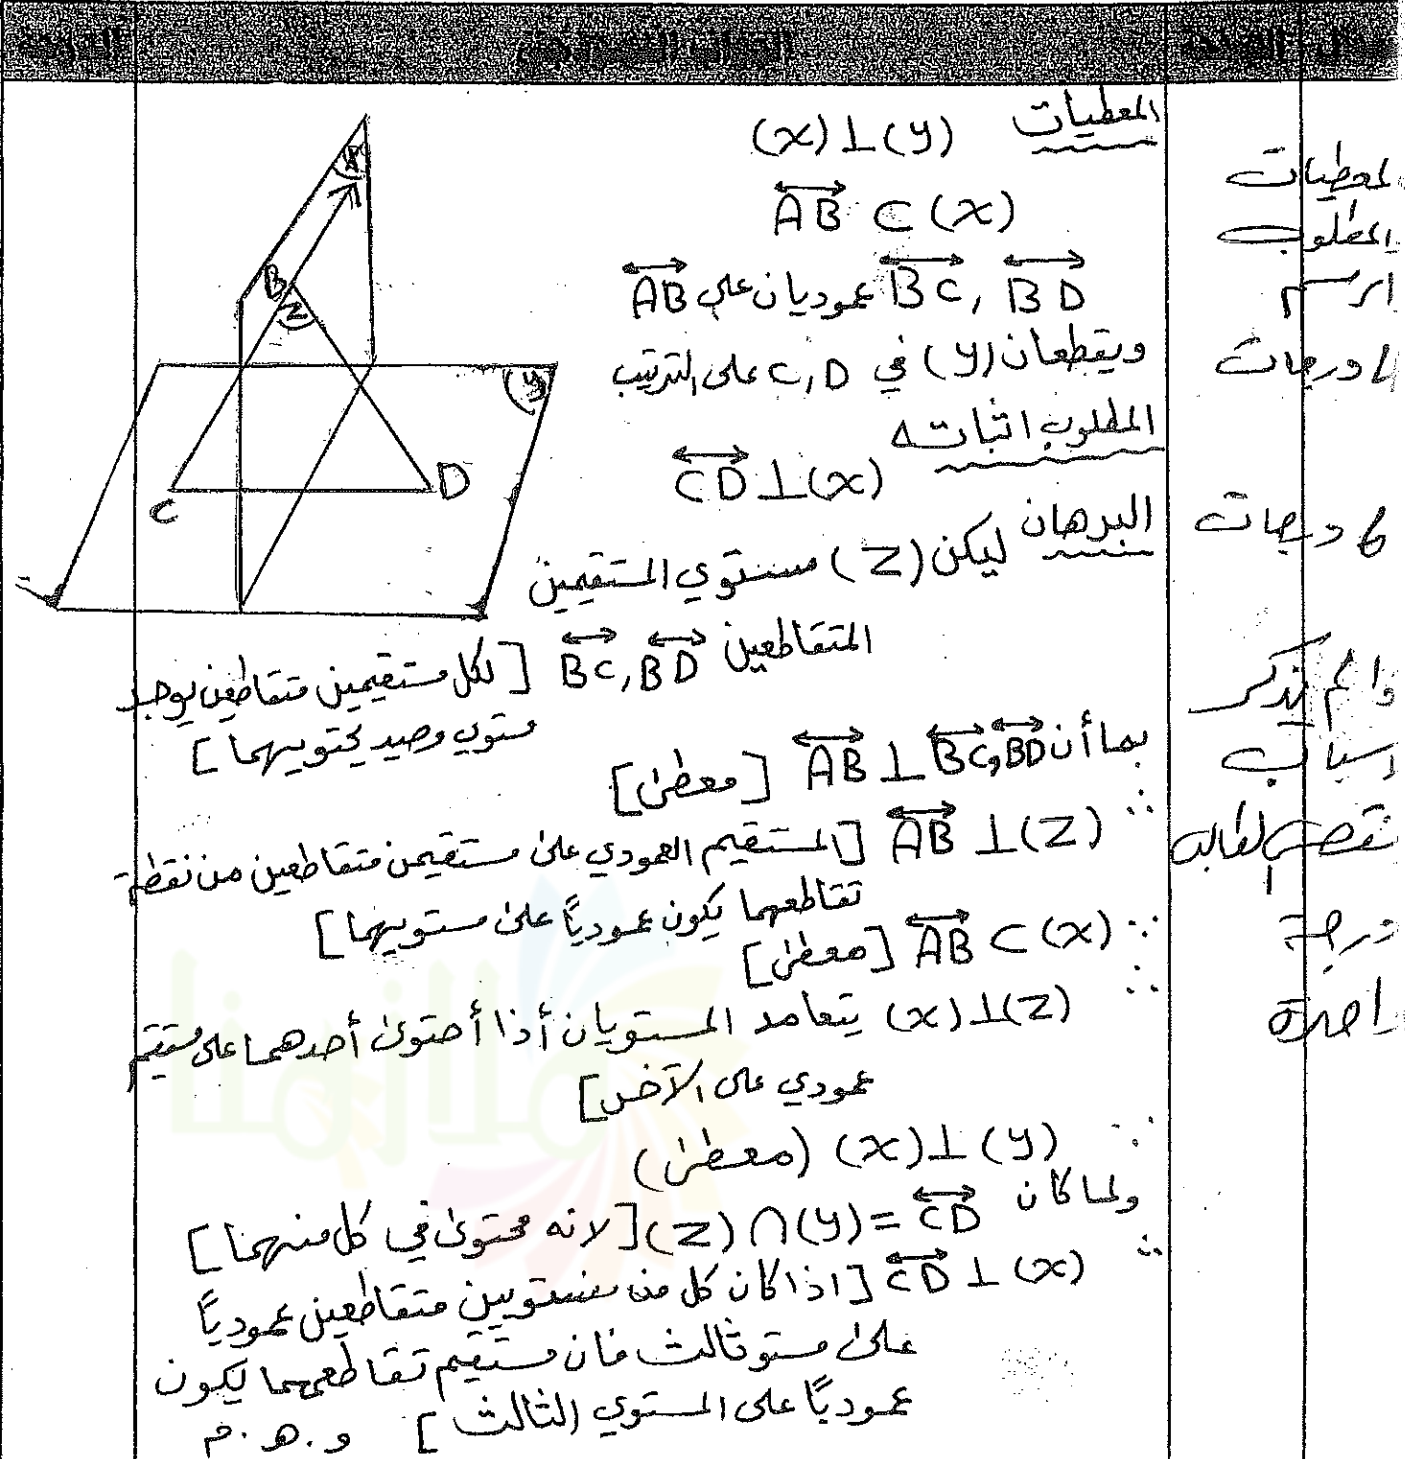 المعطيات (X)⊥(Y)
AB ⊂ (X)
BC, BD عموديان على AB
ويقطعان (Y) في C, D على الترتيب
المطلوب اثباته
CD ⊥ (X)
البرهان ليكن (Z) مستوي المستقيمين
المتقاطعين BC, BD [لكل مستقيمين متقاطعين يوجد
مستوي وحيد يحتويهما]
بما أن AB ⊥ BC, BD [معطى]
∴ AB ⊥ (Z) [المستقيم العمودي على مستقيمن متقاطعين من نقطة
تقاطعهما يكون عمودياً على مستويهما]
∵ AB ⊂ (X) [معطى]
∴ (X)⊥(Z) يتعامد المستويان أذا أحتوى أحدهما على مستقيم
عمودي على الآخر]
∵ (X)⊥(Y) (معطى)
ولما كان (Z)∩(Y)=CD [لانه محتوى في كل منهما]
∴ CD ⊥ (X) [اذا كان كل من مستويين متقاطعين عمودياً
على مستو ثالث فان مستقيم تقاطعهما يكون
عمودياً على المستوي الثالث] و.ه.م
المعطيات
المطلوب
الرسم
4 درجات
6 درجات
لم يذكر
نقص
درجة
X
B
Z
Y
C
D
ملازمنا